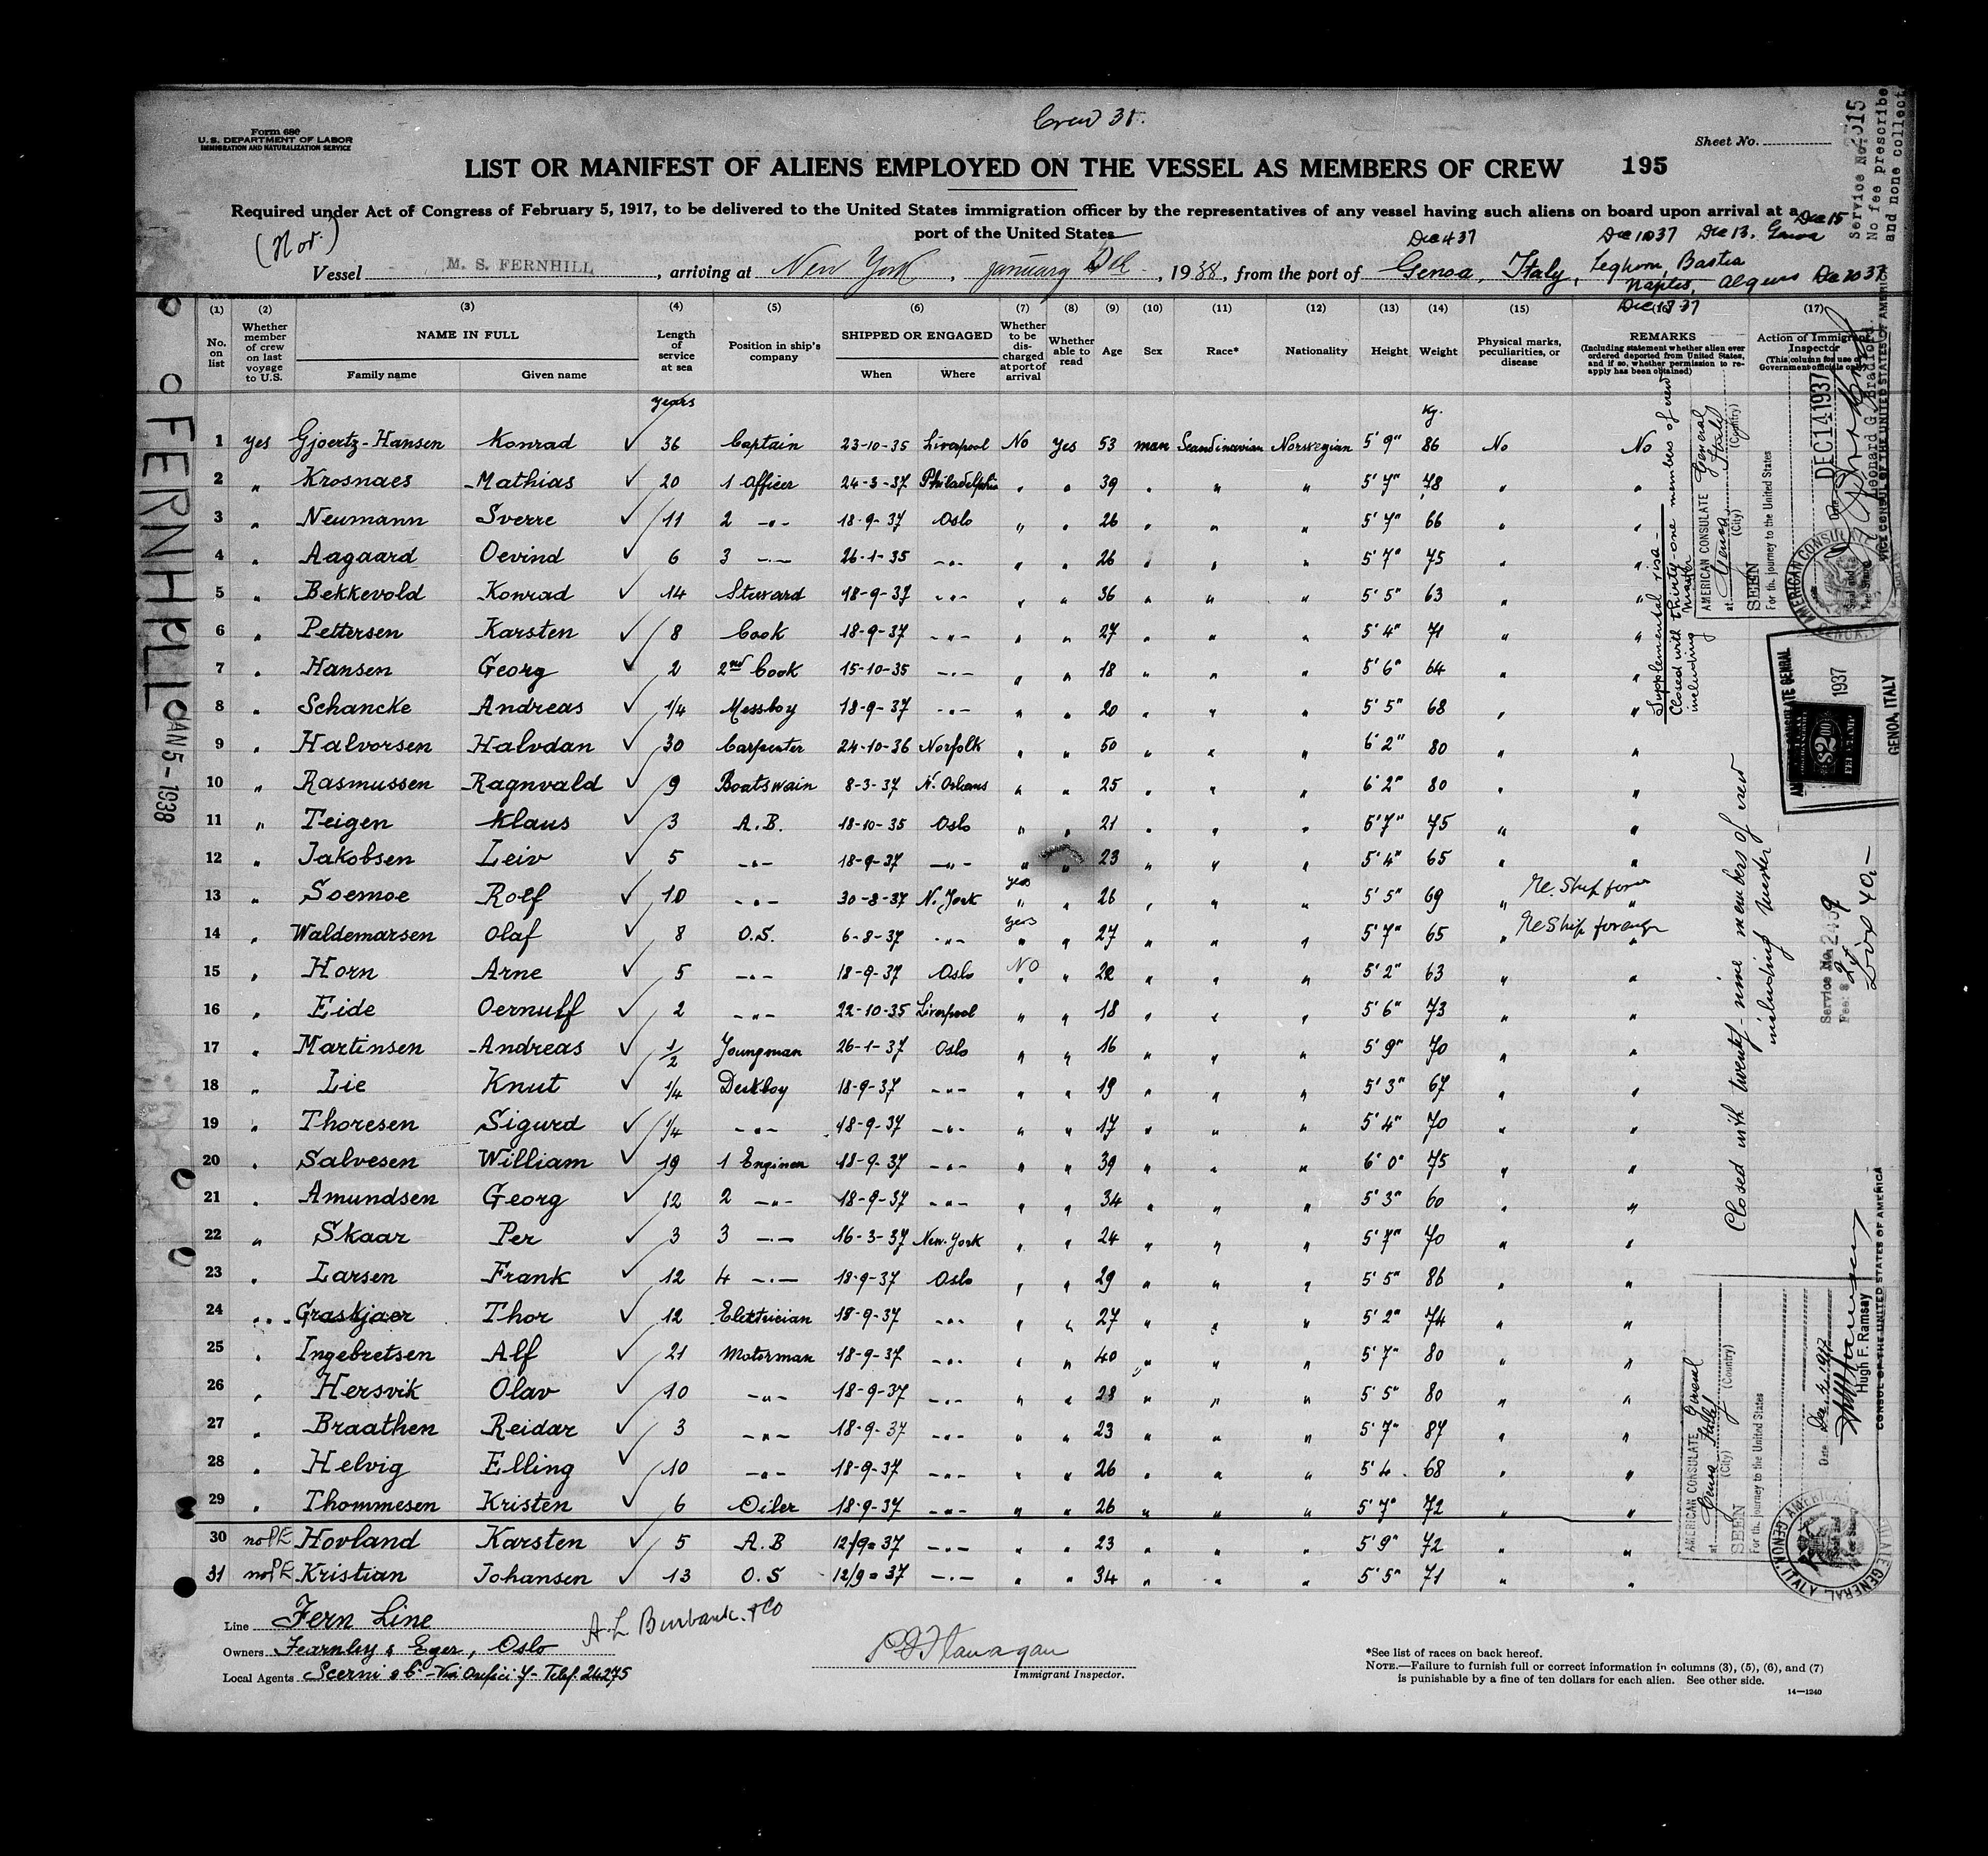 Crew 31.
Form 680
U. S. DEPARTMENT OF LABOR
IMMIGRATION AND NATURALIZATION SERVICE
Sheet No.
LIST OR MANIFEST OF ALIENS EMPLOYED ON THE VESSEL AS MEMBERS OF CREW 195
Required under Act of Congress of February 5, 1917, to be delivered to the United States immigration officer by the representatives of any vessel having such aliens on board upon arrival at a
port of the United States
(Nor.)
Dec 4 37 Dec 10 37 Dec 13. Genoa Dec 15
Vessel M. S. FERNHILL, arriving at New York, January 5th, 1938, from the port of Genoa, Italy, Leghorn, Bastia
Naples, Algiers Dec 20 37
Dec 18 37
(1) (2) (3) (4) (5) (6) (7) (8) (9) (10) (11) (12) (13) (14) (15) (16) (17)
No. on list
Whether member of crew on last voyage to U.S.
NAME IN FULL
Family name Given name
Length of service at sea
Position in ship's company
SHIPPED OR ENGAGED
When Where
Whether to be discharged at port of arrival
Whether able to read
Age
Sex
Race*
Nationality
Height
Weight
Physical marks, peculiarities, or disease
REMARKS
(Including statement whether alien ever ordered deported from United States, and if so, whether permission to re-apply has been obtained)
Action of Immigrant Inspector
(This column for use of Government officials only)
years kg.
1 yes Gjoertz-Hansen Konrad ✓ 36 Captain 23-10-35 Liverpool No yes 53 man Scandinavian Norwegian 5' 9" 86 No No
2 " Krosnaes Mathias ✓ 20 1 Officer 24-3-37 Philadelphia " " 39 " " " 5' 7" 78 " "
3 " Neumann Sverre ✓ 11 2 -"- 18-9-37 Oslo " " 26 " " " 5' 7" 66 " "
4 " Aagaard Oevind ✓ 6 3 -"- 26-1-35 -"- " " 26 " " " 5' 7" 75 " "
5 " Bekkevold Konrad ✓ 14 Stuward 18-9-37 -"- " " 36 " " " 5' 5" 63 " "
6 " Pettersen Karsten ✓ 8 Cook 18-9-37 -"- " " 27 " " " 5' 4" 71 " "
7 " Hansen Georg ✓ 2 2nd Cook 15-10-35 -"- " " 18 " " " 5' 6" 64 " "
8 " Schancke Andreas ✓ 1/4 Messboy 18-9-37 -"- " " 20 " " " 5' 5" 68 " "
9 " Halvorsen Halvdan ✓ 30 Carpenter 24-10-36 Norfolk " " 50 " " " 6' 2" 80 " "
10 " Rasmussen Ragnvald ✓ 9 Boatswain 8-3-37 N. Orleans " " 25 " " " 6' 2" 80 " "
11 " Teigen Klaus ✓ 3 A.B. 18-10-35 Oslo " " 21 " " " 6' 7" 75 " "
12 " Jakobsen Leiv ✓ 5 -"- 18-9-37 -"- " " 23 " " " 5' 4" 65 " "
13 " Soemoe Rolf ✓ 10 -"- 30-8-37 N. York yes " 26 " " " 5' 5" 69 " Re Ship "
14 " Waldemarsen Olaf ✓ 8 O.S. 6-8-37 -"- yes " 27 " " " 5' 7" 65 " Re Ship foreign "
15 " Horn Arne ✓ 5 -"- 18-9-37 Oslo No " 22 " " " 5' 2" 63 " "
16 " Eide Oernulf ✓ 2 -"- 22-10-35 Liverpool " " 18 " " " 5' 6" 73 " "
17 " Martinsen Andreas ✓ 1/2 Youngman 26-1-37 Oslo " " 16 " " " 5' 9" 70 " "
18 " Lie Knut ✓ 1/4 Deckboy 18-9-37 -"- " " 19 " " " 5' 3" 67 " "
19 " Thoresen Sigurd ✓ 1/4 -"- 18-9-37 -"- " " 17 " " " 5' 4" 70 " "
20 " Salvesen William ✓ 19 1 Engineer 18-9-37 -"- " " 39 " " " 6' 0" 75 " "
21 " Amundsen Georg ✓ 12 2 -"- 18-9-37 -"- " " 34 " " " 5' 3" 60 " "
22 " Skaar Per ✓ 3 3 -"- 16-3-37 New-York " " 24 " " " 5' 7" 70 " "
23 " Larsen Frank ✓ 12 4 -"- 18-9-37 Oslo " " 29 " " " 5' 5" 86 " "
24 " Graskjaer Thor ✓ 12 Elektrician 18-9-37 -"- " " 27 " " " 5' 2" 74 " "
25 " Ingebretsen Alf ✓ 21 Motorman 18-9-37 -"- " " 40 " " " 5' 7" 80 " "
26 " Hersvik Olav ✓ 10 -"- 18-9-37 -"- " " 28 " " " 5' 5" 80 " "
27 " Braathen Reidar ✓ 3 -"- 18-9-37 -"- " " 23 " " " 5' 7" 87 " "
28 " Helvig Elling ✓ 10 -"- 18-9-37 -"- " " 26 " " " 5' 4 68 " "
29 " Thommesen Kristen ✓ 6 Oiler 18-9-37 -"- " " 26 " " " 5' 7" 72 " "
30 no PE Hovland Karsten ✓ 5 A.B 12/9=37 -"- " " 23 " " " 5' 9" 72 " "
31 no PE Kristian Johansen ✓ 13 O.S 12/9=37 -"- " " 34 " " " 5' 5" 71 " "
Line Fern Line
A L Burbank & Co
Owners Fearnley & Eger, Oslo
Local Agents Scerni & Co - Via Orefici 7 - Telef. 24275
Immigrant Inspector.
*See list of races on back hereof.
NOTE.—Failure to furnish full or correct information in columns (3), (5), (6), and (7)
is punishable by a fine of ten dollars for each alien. See other side.
14—1240
FERNHILL
JAN 5 - 1938
Service No. 2515
No fee prescribe
and none collect
Supplemental visa -
Closed with thirty-one members of crew
including master
AMERICAN CONSULATE General
at Genoa Italy
(City) (Country)
SEEN
For th. journey to the United States
Date DEC 14 1937
Leonard G. Bradford.
VICE CONSUL OF THE UNITED STATES OF AMERICA
AMERICAN CONSULATE
GENOA,
AMERICAN CONSULATE GENERAL
1937
$2.00
FEE STAMP
GENOA, ITALY
Closed with twenty-nine members of crew
including master
Service No. 2489
Fee: $ 2
Lire 40,-
AMERICAN CONSULATE General
at Genoa Italy
(City) (Country)
SEEN
For th. journey to the United States
Date Dec. 4, 1937
Hugh F. Ramsay
CONSUL OF THE UNITED STATES OF AMERICA
AMERICAN CONSULATE GENERAL
GENOA, ITALY